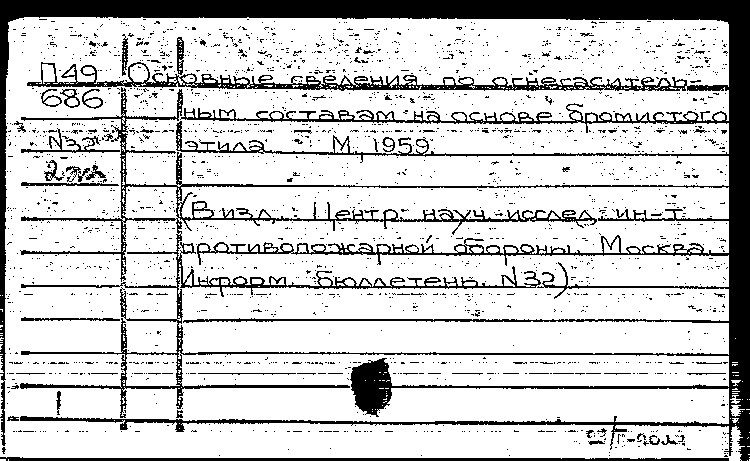 П49 Основные сведения по огнегаситель-
686 ным составам на основе бромистого
N32 этила М., 1959.
2 экз
(В изд.: Центр. науч.-исслед. ин-т
противопожарной обороны. Москва.
Информ. бюллетень. N32).
1